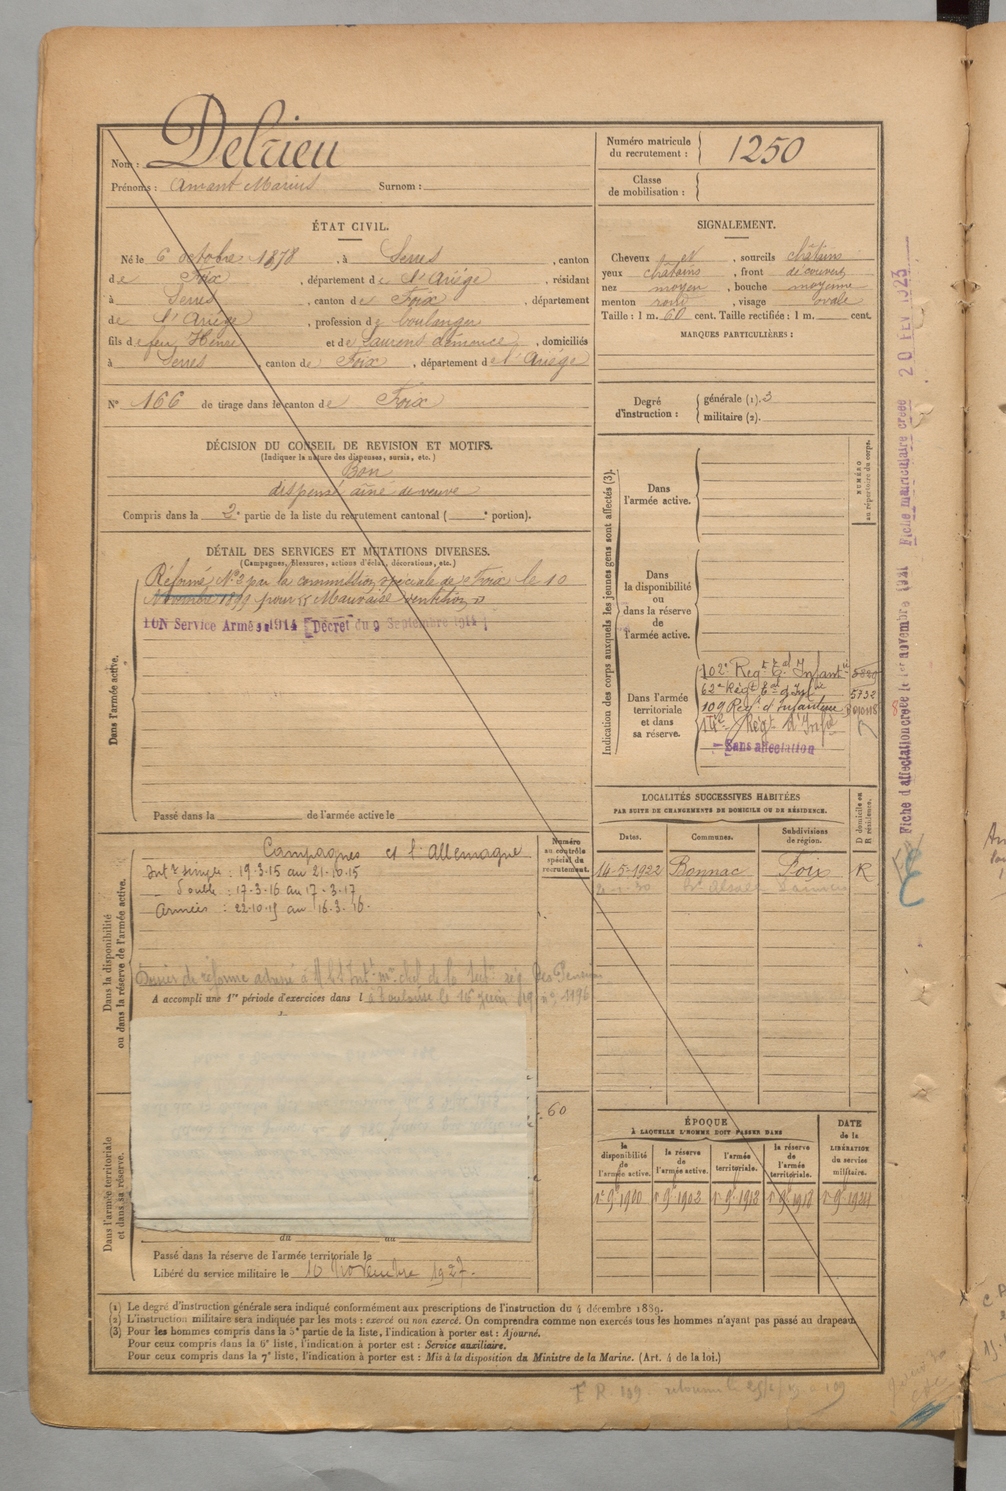 Nom : Delrieu
Prénoms : Amant Marius Surnom :
Numéro matricule du recrutement : 1250
Classe de mobilisation :
ÉTAT CIVIL.
Né le 6 octobre 1878, à Serres, canton
de Foix, département de l'Ariège, résidant
à Serres, canton de Foix, département
de l'Ariège, profession de boulanger
fils de feu Henri et de Laurens démence, domiciliés
à Serres, canton de Foix, département de l'Ariège
N° 166 de tirage dans le canton de Foix
SIGNALEMENT.
Cheveux et, sourcils châtains
yeux châtains, front découvert
nez moyen, bouche moyenne
menton rond, visage ovale
Taille : 1 m. 60 cent. Taille rectifiée : 1 m. cent.
MARQUES PARTICULIÈRES :
Degré d'instruction : générale (1). 3
militaire (2).
DÉCISION DU CONSEIL DE REVISION ET MOTIFS.
(Indiquer la nature des dispenses, sursis, etc.)
Bon
dispensé aîné de veuve
Compris dans la 2e partie de la liste du recrutement cantonal ( e portion).
DÉTAIL DES SERVICES ET MUTATIONS DIVERSES.
(Campagnes, blessures, actions d'éclat, décorations, etc.)
Dans l'armée active.
Réformé N° 2 par la commission spéciale de Foix le 10
Novembre 1899 pour "Mauvaise dentition"
Service Armé 1914 [Décret du 9 Septembre 1914]
Passé dans la de l'armée active le
Indication des corps auxquels les jeunes gens sont affectés (3).
NUMÉRO au répertoire du corps.
Dans l'armée active.
Dans la disponibilité ou dans la réserve de l'armée active.
Dans l'armée territoriale et dans sa réserve.
102e Regt d'Infantrie
62e Régt d'Infrie 5732
109 Regt d'Infanterie
Régt d'Infie
Sans affectation
LOCALITÉS SUCCESSIVES HABITÉES
PAR SUITE DE CHANGEMENTS DE DOMICILE OU DE RÉSIDENCE.
Dates. Communes. Subdivisions de région. D domicile ou R résidence.
14-5-1922 Bonnac Foix R
Fiche d'affectation créée le 1er novembre 1921 Fiche matriculaire créée 20 FEV 1923
Dans la disponibilité ou dans la réserve de l'armée active.
Numéro au contrôle spécial du recrutement.
Campagnes ct l'Allemagne
Intr simple : 19-3-15 au 21-10-15
— double : 17-3-16 au 17-3-17
Armées : 22-10-15 au 16-3-16.
Dossier de réforme adressé à
A accompli une 1re période d'exercices dans l
à Toulouse le 16 juin
Dans l'armée territoriale et dans sa réserve.
60
du au
Passé dans la réserve de l'armée territoriale le
Libéré du service militaire le 10 Novembre 1927.
ÉPOQUE
À LAQUELLE L'HOMME DOIT PASSER DANS
la disponibilité de l'armée active. la réserve de l'armée active. l'armée territoriale. la réserve de l'armée territoriale. DATE de la LIBÉRATION du service militaire.
1er 9e 1900 1er 9e 1902 1er 9e 1912 1er 9e 1918 1er 9e 1924
(1) Le degré d'instruction générale sera indiqué conformément aux prescriptions de l'instruction du 4 décembre 1889.
(2) L'instruction militaire sera indiquée par les mots : exercé ou non exercé. On comprendra comme non exercés tous les hommes n'ayant pas passé au drapeau.
(3) Pour les hommes compris dans la 5e partie de la liste, l'indication à porter est : Ajourné.
Pour ceux compris dans la 6e liste, l'indication à porter est : Service auxiliaire.
Pour ceux compris dans la 7e liste, l'indication à porter est : Mis à la disposition du Ministre de la Marine. (Art. 4 de la loi.)